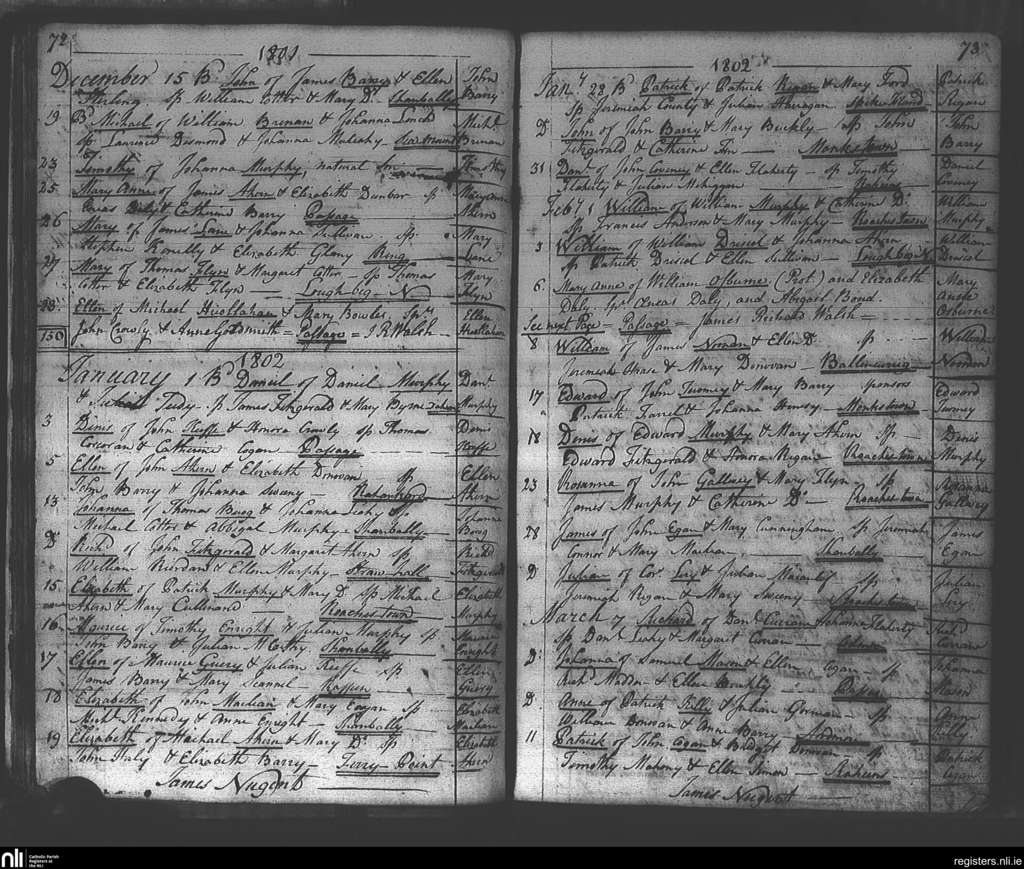 72
1801
December 15 B John of James Barry & Ellen John
Sterling. Sp William Cotter & Mary Do Shanbally Barry
19 B Michael of William Brenan & Johanna Lynch Michl
Sp Laurence Desmond & Johanna Mulcahy Brenan
23 Timothy of Johanna Murphy, natural Son Timothy
25 Mary Anne of James Ahern & Elizabeth Dunbar Sp Mary Anne
Eneas Daly & Catherine Barry Passage Ahern
26 Mary of James Lane & Johanna Sullivan Sp Mary
Stephen & Elizabeth Ring Lane
27 Mary of Thomas Flyn & Margaret Cotter Sp Thomas Mary
Cotter & Elizabeth Flyn Loughbeg N Flyn
28 Ellen of Michael Huollahan & Mary Bowles. Sprs Ellen
150 John Crowly & Anne Goldsmith = Passage = J.R. Walsh Huollahan
1802
January 1 B Daniel of Daniel Murphy Danl
& Tudy Sp James Fitzgerald & Mary Byrne Murphy
3 Denis of John Keeffe & Honora Crowly Sp Thomas Denis
Corcoran & Catherine Cogan Passage Keeffe
5 Ellen of John Ahern & Elizabeth Donovan Sp Ellen
John Barry & Johanna Sweny Ahern
13 Johanna of Thomas Boug & Johanna Leahy Sp Johanna
Michael Cotter & Abbigal Murphy Shanbally Boug
Do Richd of John Fitzgerald & Margaret Ahern Sp Richd
William Riordan & Ellen Murphy Straw-hall Fitzgerald
15 Elizabeth of Patrick Murphy & Mary Do Sp Michael Elizabeth
Ahern & Mary Cullinand Roaches-town Murphy
16 Maurice of Timothy Enright & Julian Murphy Sp Maurice
John Barry & Julian McCarthy Shanbally Enright
17 Ellen of Maurice Guiry & Julian Keeffe Sp Ellen
James Barry & Mary Scannel Raffeen Guiry
18 Elizabeth of John Maclean & Mary Eagan Sp Elizabeth
Michl Kennedy & Anne Enright Shanbally
19 Elizabeth of Michael Ahern & Mary Do Sp Elizabeth
John Haly & Elizabeth Barry Ferry-Point Ahern
James Nugent
73
1802
Jany 28 B Patrick of Patrick Regan & Mary Ford Patrick
Sp Jeremiah County & Julian Spike Island Regan
Do John of John Barry & Mary Buckly Sp John John
Fitzgerald & Catherine Monkstown Barry
31 Danl of John Coveney & Ellen Flaherty Sp Timothy Daniel
Flaherty & Julian Mehiggan Coveney
Feby 1 William of William Murphy & Cathern Do William
Sp Frances Anderson & Mary Murphy Roaches-town Murphy
3 William of William Driscol & Johanna Ahern William
Sp Patrick Driscol & Ellen Sullivan Loughbeg N Driscol
6 Mary Anne of William Osburne (Prot.) and Elizabeth Mary
Daly, Sprs Eneas Daly, and Abigail Bond. Anne
See next Page = Passage = James Richard Walsh = Osburne
8 William of James Noonan & Ellen Do Sp William
Jeremiah & Mary Donovan Noonan
17 Edward of John Twomey & Mary Barry Sponsors Edward
Patrick Farrel & Johanna Monkstown Twomey
18 Denis of Edward Murphy & Mary Ahern Sp Denis
Edward Fitzgerald & Honora Regan Roaches-town Murphy
23 Rosanna of John Gallwey & Mary Flyn Sp Rosanna
James Murphy & Catherine Do Roaches-town Gallwey
28 James of John Egan & Mary Cunningham Sp Jeremiah James
Connor & Mary Maclean Shanbally Egan
Do Julian of Cors Lucy & Julian Sp Julian
Jeremiah Regan & Mary Sweeny Roaches-town Lucy
March 7 Richard of Danl Curran & Johanna Flaherty Richd
Sp Danl Leahy & Margaret Curran Curran
Do Johanna of Samuel Mason & Ellen Cogan Sp Johanna
Richd Madden & Ellen Raffeen Mason
Do Anne of Patrick Killy & Julian Gorman Sp Anne
William Donovan & Ann Barry Killy
11 Patrick of John Cogan & Bridget Donovan Sp Patrick
Timothy Mahony & Ellen Cogan
James Nugent
nli
Catholic Parish
Registers at
the NLI
registers.nli.ie